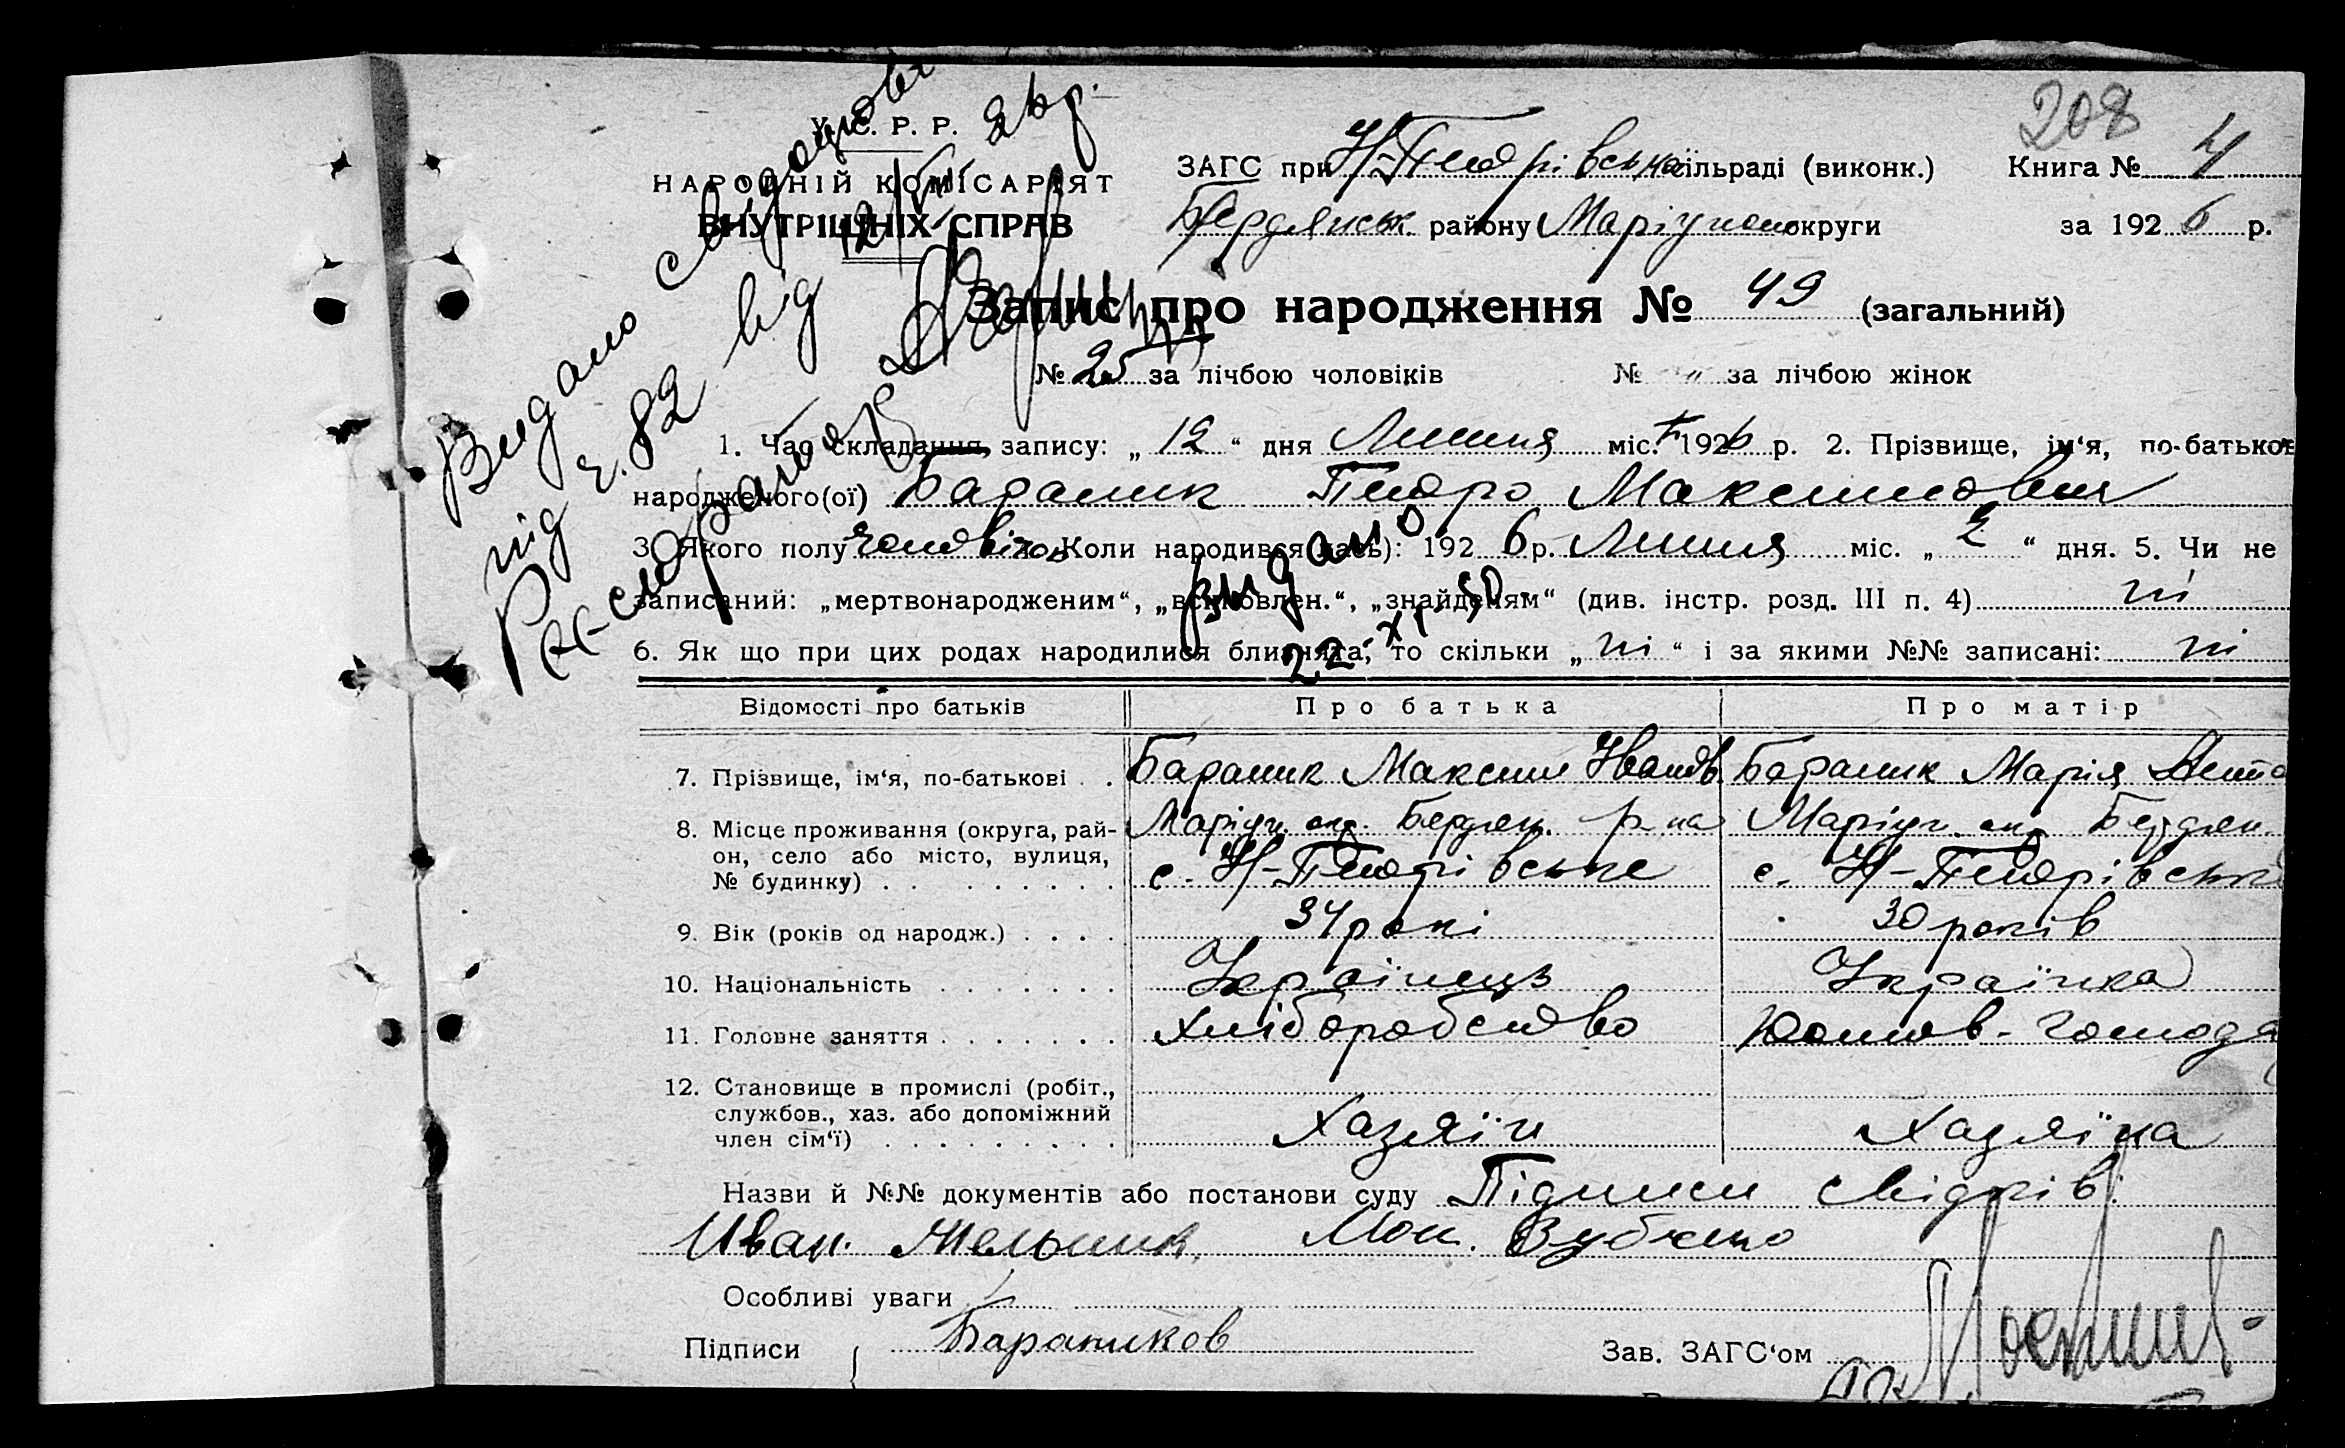 208
У. С. Р. Р.
НАРОДНІЙ КОМІСАРІЯТ
ВНУТРІШНІХ СПРАВ
ЗАГС при Н-Петрівська сільраді (виконк.) Книга № 4
Бердянськ району Маріупол округи за 192 6 р.
Видано свідоцтво
під ч. 82 від 12/VII 26 р.
Запис про народження № 49 (загальний)
№ 25 за лічбою чоловіків № " за лічбою жінок
1. Час складання запису: „ 12 “ дня Липня міс. 1926 р. 2. Прізвище, ім‘я, по-батьков
народженого(ої) Бараник Петро Максимович
3. Якого полу чоловічої Коли народився(лась): 192 6 р. Липня міс. „ 2 “ дня. 5. Чи не
записаний: „мертвонародженим“, „всиновлен.“, „знайденям“ (див. інстр. розд. III п. 4) ні
видано
22-XI-50
6. Як що при цих родах народилися близнята, то скільки „ ні “ і за якими №№ записані: ні
Відомості про батьків Про батька Про матір
7. Прізвище, ім‘я, по-батькові . . Бараник Максим Іванов. Бараник Марія
8. Місце проживання (округа, рай- Маріуп. окр. Бердян. р-на Маріуп. окр. Бердян.
он, село або місто, вулиця, с. Н-Петрівське с. Н-Петрівське
№ будинку)
9. Вік (років од народж.) . . . . 34 рокі 30 років
10. Національність Українець Українка
11. Головне заняття Хліборобство Домов-господ
12. Становище в промислі (робіт.,
службов., хаз. або допоміжний Хазяїн Хазяїна
член сім‘ї)
Назви й №№ документів або постанови суду Підписи свідків:
Иван. Мельник. Мой. Зубченко
Особливі уваги
Підписи Бараников Зав. ЗАГС‘ом